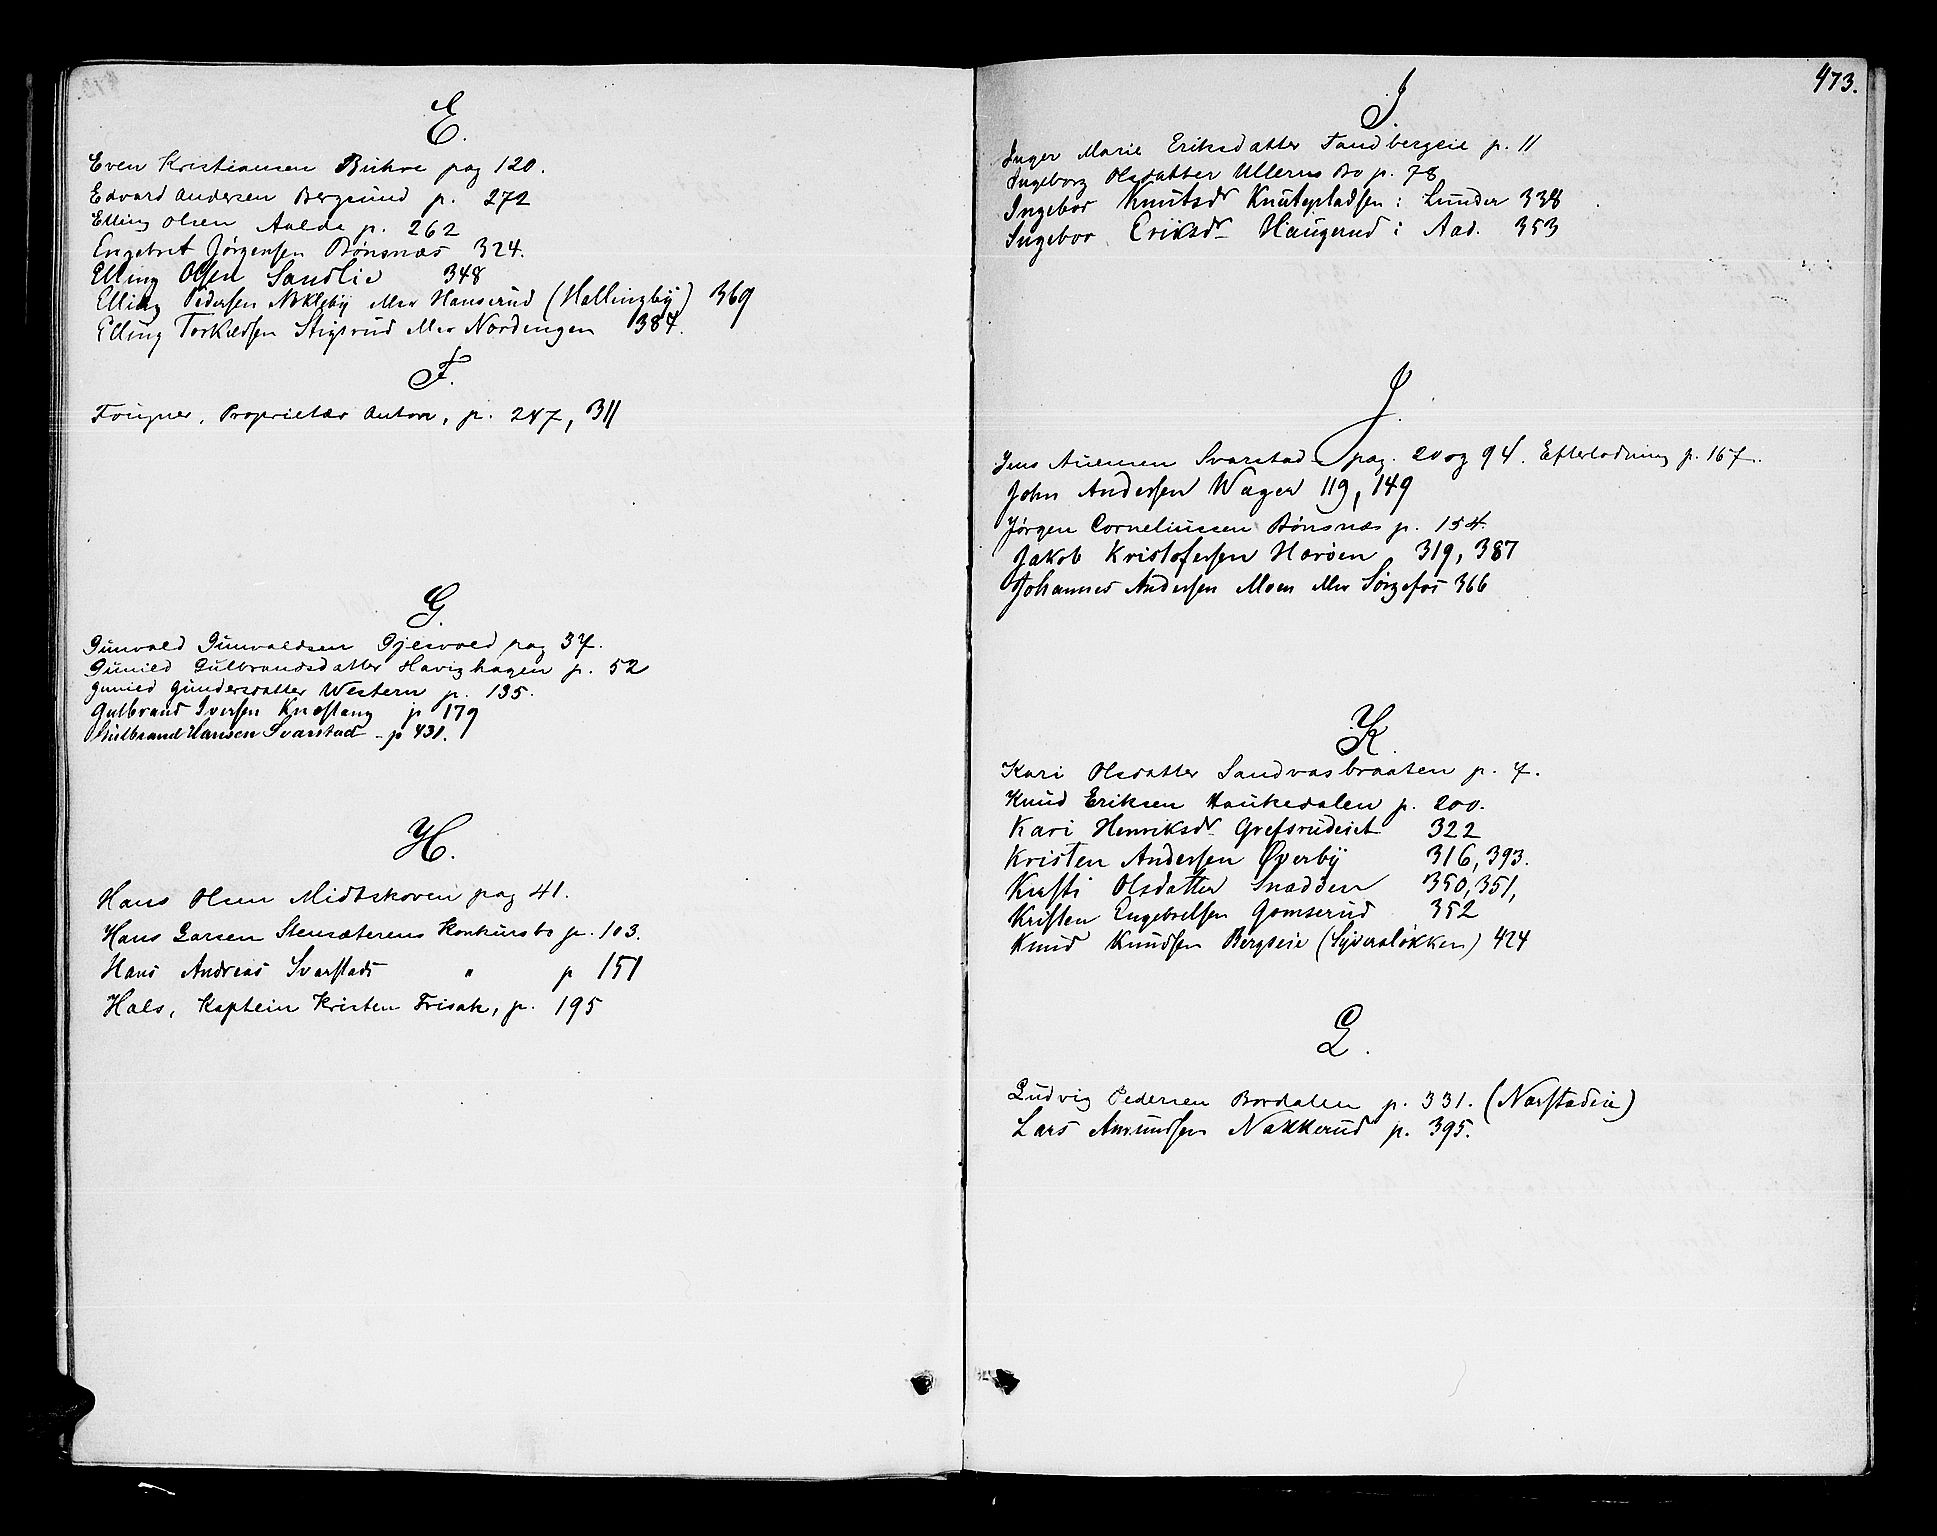 E.
Even Kristiansen Buhre pag 120.
Edvard Andersen Bergsund p. 272
Elling Olsen Aalde p. 262
Engebret Jørgensen Bønsnæs 324.
Elling Olsen Sandlie 348
Elling Pedersen Nokleby eller Hanserud (Hallingby) 369
Elling Torkildsen Stigsrud eller Nordengen 384.
F.
Fougner, Proprietær Anton, p. 247, 311
G.
Gunvald Gunvaldsen Gjesvold pag 37.
Gunild Gulbrandsdatter Havighagen p. 52
Gunild Gundersdatter Western p. 135.
Gulbrand Iversen Knæstang p 179
Gulbrand Hansen Svarstad - p 431.
H.
Hans Olsen Midtskoven pag 41.
Hans Larsen Stensæterens Konkursbo p. 103.
Hans Andreas Svarstads " p 151
Hals, Kaptein Kristen Frisak, p. 195
473.
I.
Inger Marie Eriksdatter Tandbergeie p. 11
Ingeborg Olsdatter Ullerns Bo p. 78
Ingebor Knutsdr Knutepladsen i Lunder 338
Ingebor Eriksdr Haugerud i Aad. 353
J.
Jens Svarstad pag. 20 og 94. Efterlodning p. 167.
John Andersen Wager 119, 149
Jørgen Corneliussen Bønsnæs p. 154.
Jakob Kristofersen Hærøen 319, 387
Johannes Andersen Moen eller Sørgefos 366
K.
Kari Olsdatter Sandvasbraaten p. 7.
Knud Eriksen Haukedalen p. 200.
Kari Henriksdr Grefsrudeiet 322
Kristen Andersen Øverby 316, 393.
Kersti Olsdatter Snadden 350, 351,
Kristen Engebretsen Gomserud 352
Knud Knudsen Bergseie (Syversløkken) 424
L.
Ludvig Pedersen Bordalen p. 331. (Narstadeie)
Lars Amundsen Nakkerud p. 395.